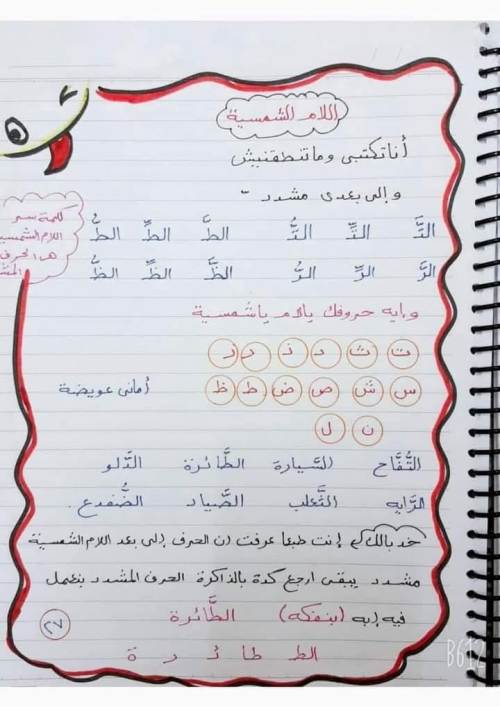 اللام الشمسية
أنا تكتبى وما تنطقنيش
وإلى بعدى مشدد ّ
كلمة سر
اللام الشمسية
هذا الحرف
التَّ التِّ التُّ الطَّ الطِّ الطُّ
الرَّ الرِّ الرُّ الظَّ الظِّ الظُّ
وايه حروفك يالام ياشمسية
ت ث د ذ ر ز
س ش ص ض ط ظ
أمانى عويضة
ن ل
التُّفَّاح السَّيارة الطَّائرة الدَّلو
الرَّايه الثَّعلب الصَّياد الضُّفدع.
خد بالك إنت طبعا عرفت ان الحرف إلى بعد اللام الشمسية
مشدد يبقى ارجع كدة بالذاكرة الحرف المشدد بنعمل
فيه إيه (بنفكه) الطَّائرة
٢٧
الط طا ئـ ر ة
B612